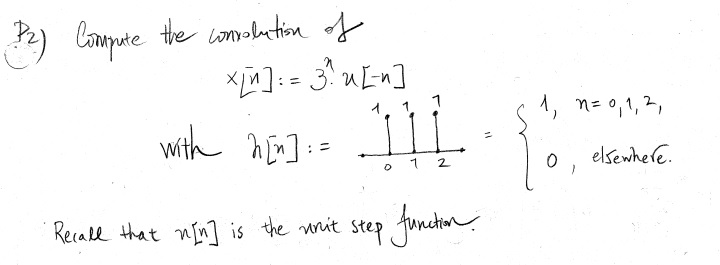 P2) Compute the convolution of
x[n] := 3ⁿ u[-n]
with h[n] := 1 1 1 0 1 2 = { 1, n = 0, 1, 2,
0, elsewhere.
Recall that u[n] is the unit step function.